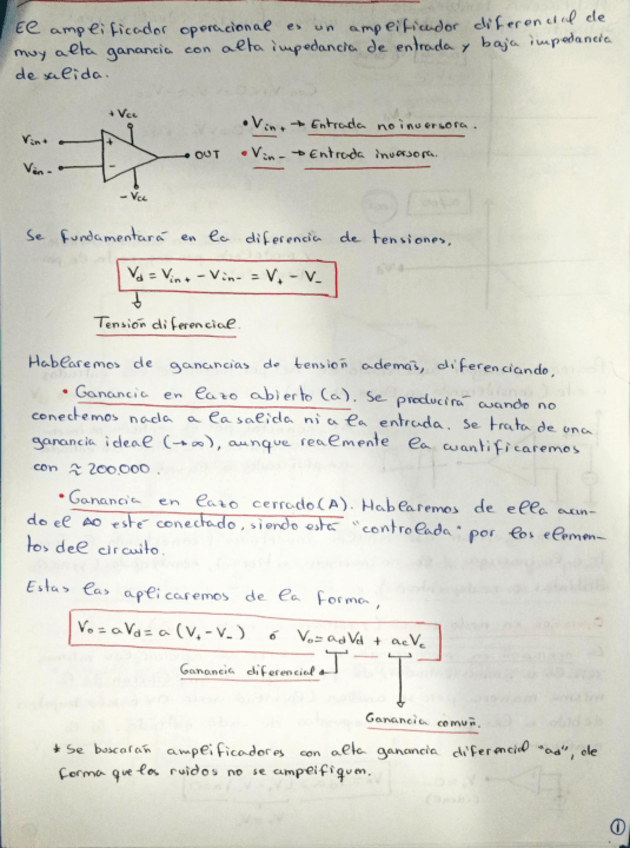 El amplificador operacional es un amplificador diferencial de
muy alta ganancia con alta impedancia de entrada y baja impedancia
de salida.
+Vcc
Vin+
+
Vin-
-
OUT
-Vcc
• Vin+ → Entrada no inversora.
• Vin- → Entrada inversora.
Se fundamentará en la diferencia de tensiones,
Vd = Vin+ - Vin- = V+ - V-
Tensión diferencial.
Hablaremos de ganancias de tensión además, diferenciando,
• Ganancia en lazo abierto (a). Se producirá cuando no
conectemos nada a la salida ni a la entrada. Se trata de una
ganancia ideal (→∞), aunque realmente la cuantificaremos
con ≈ 200.000.
• Ganancia en lazo cerrado (A). Hablaremos de ella cuan-
do el AO esté conectado, siendo esta "controlada" por los elemen-
tos del circuito.
Estas las aplicaremos de la forma,
Vo = aVd = a (V+ - V-) ó Vo = adVd + acVc
Ganancia diferencial
Ganancia común.
* Se buscarán amplificadores con alta ganancia diferencial "ad", de
forma que los ruidos no se amplifiquen.
1